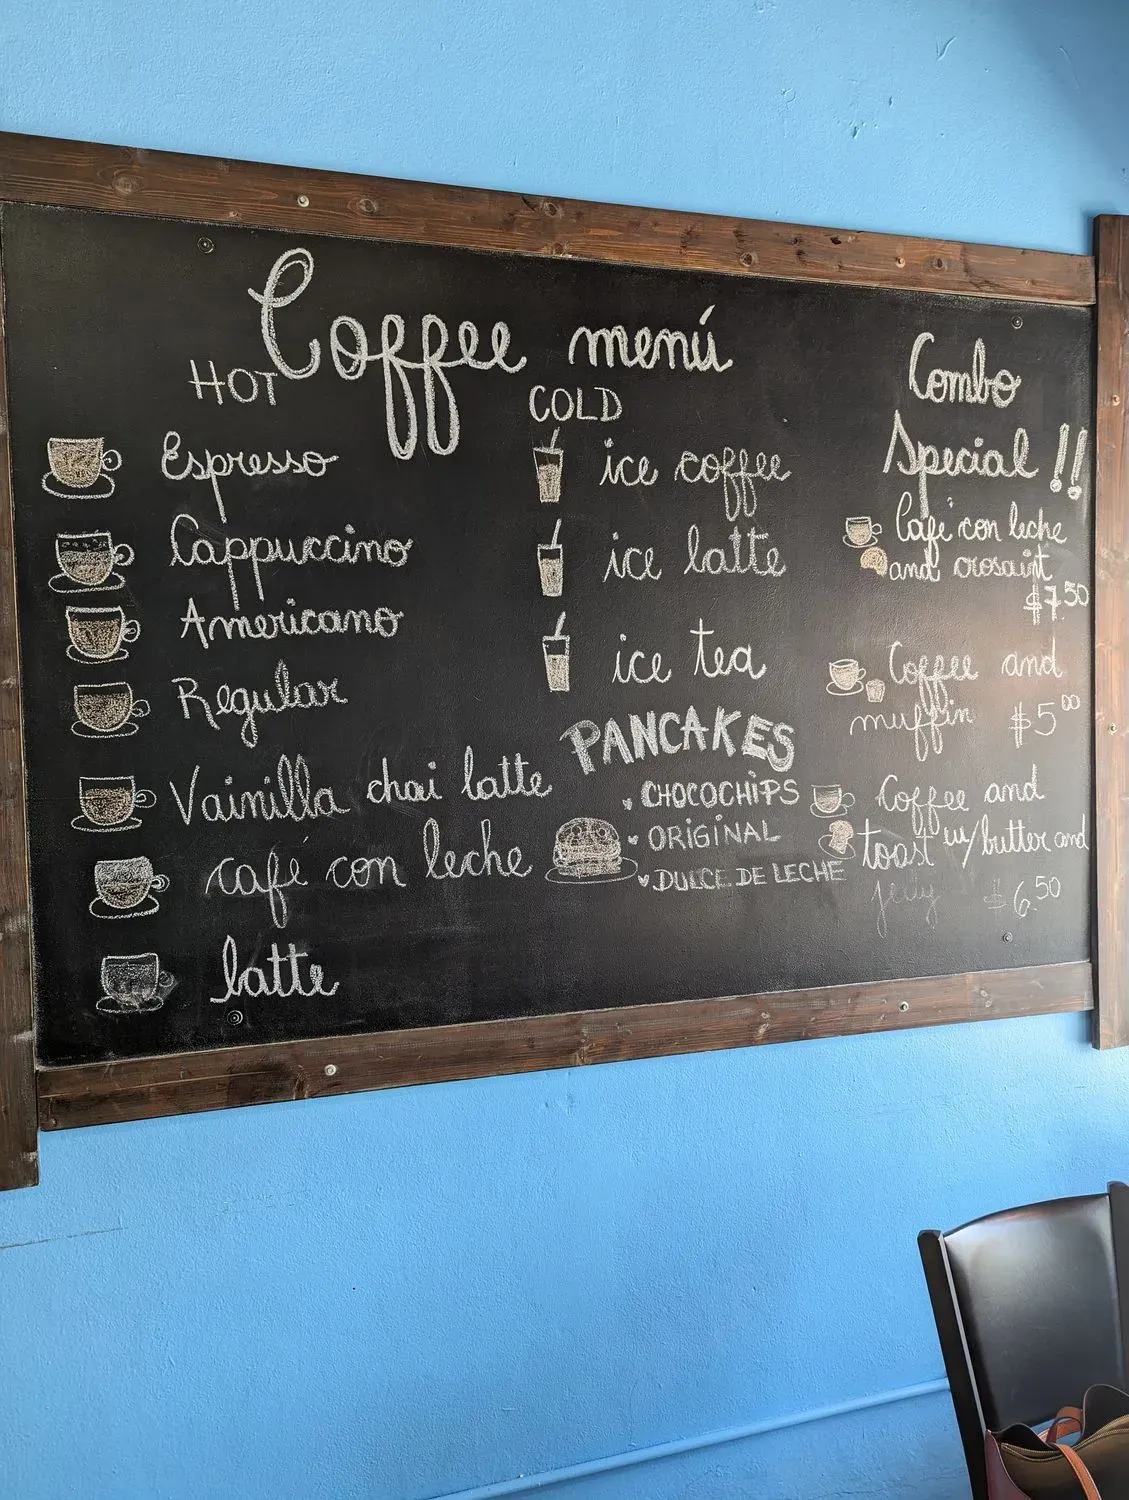 Coffee menú
HOT
Espresso
Cappuccino
Americano
Regular
Vainilla chai latte
café con leche
latte
COLD
ice coffee
ice latte
ice tea
PANCAKES
CHOCOCHIPS
ORIGINAL
DULCE DE LECHE
Combo
Special!!
Café con leche
and crosaint
$7.50
Coffee and
muffin $5.00
Coffee and
toast w/butter and
jelly $6.50